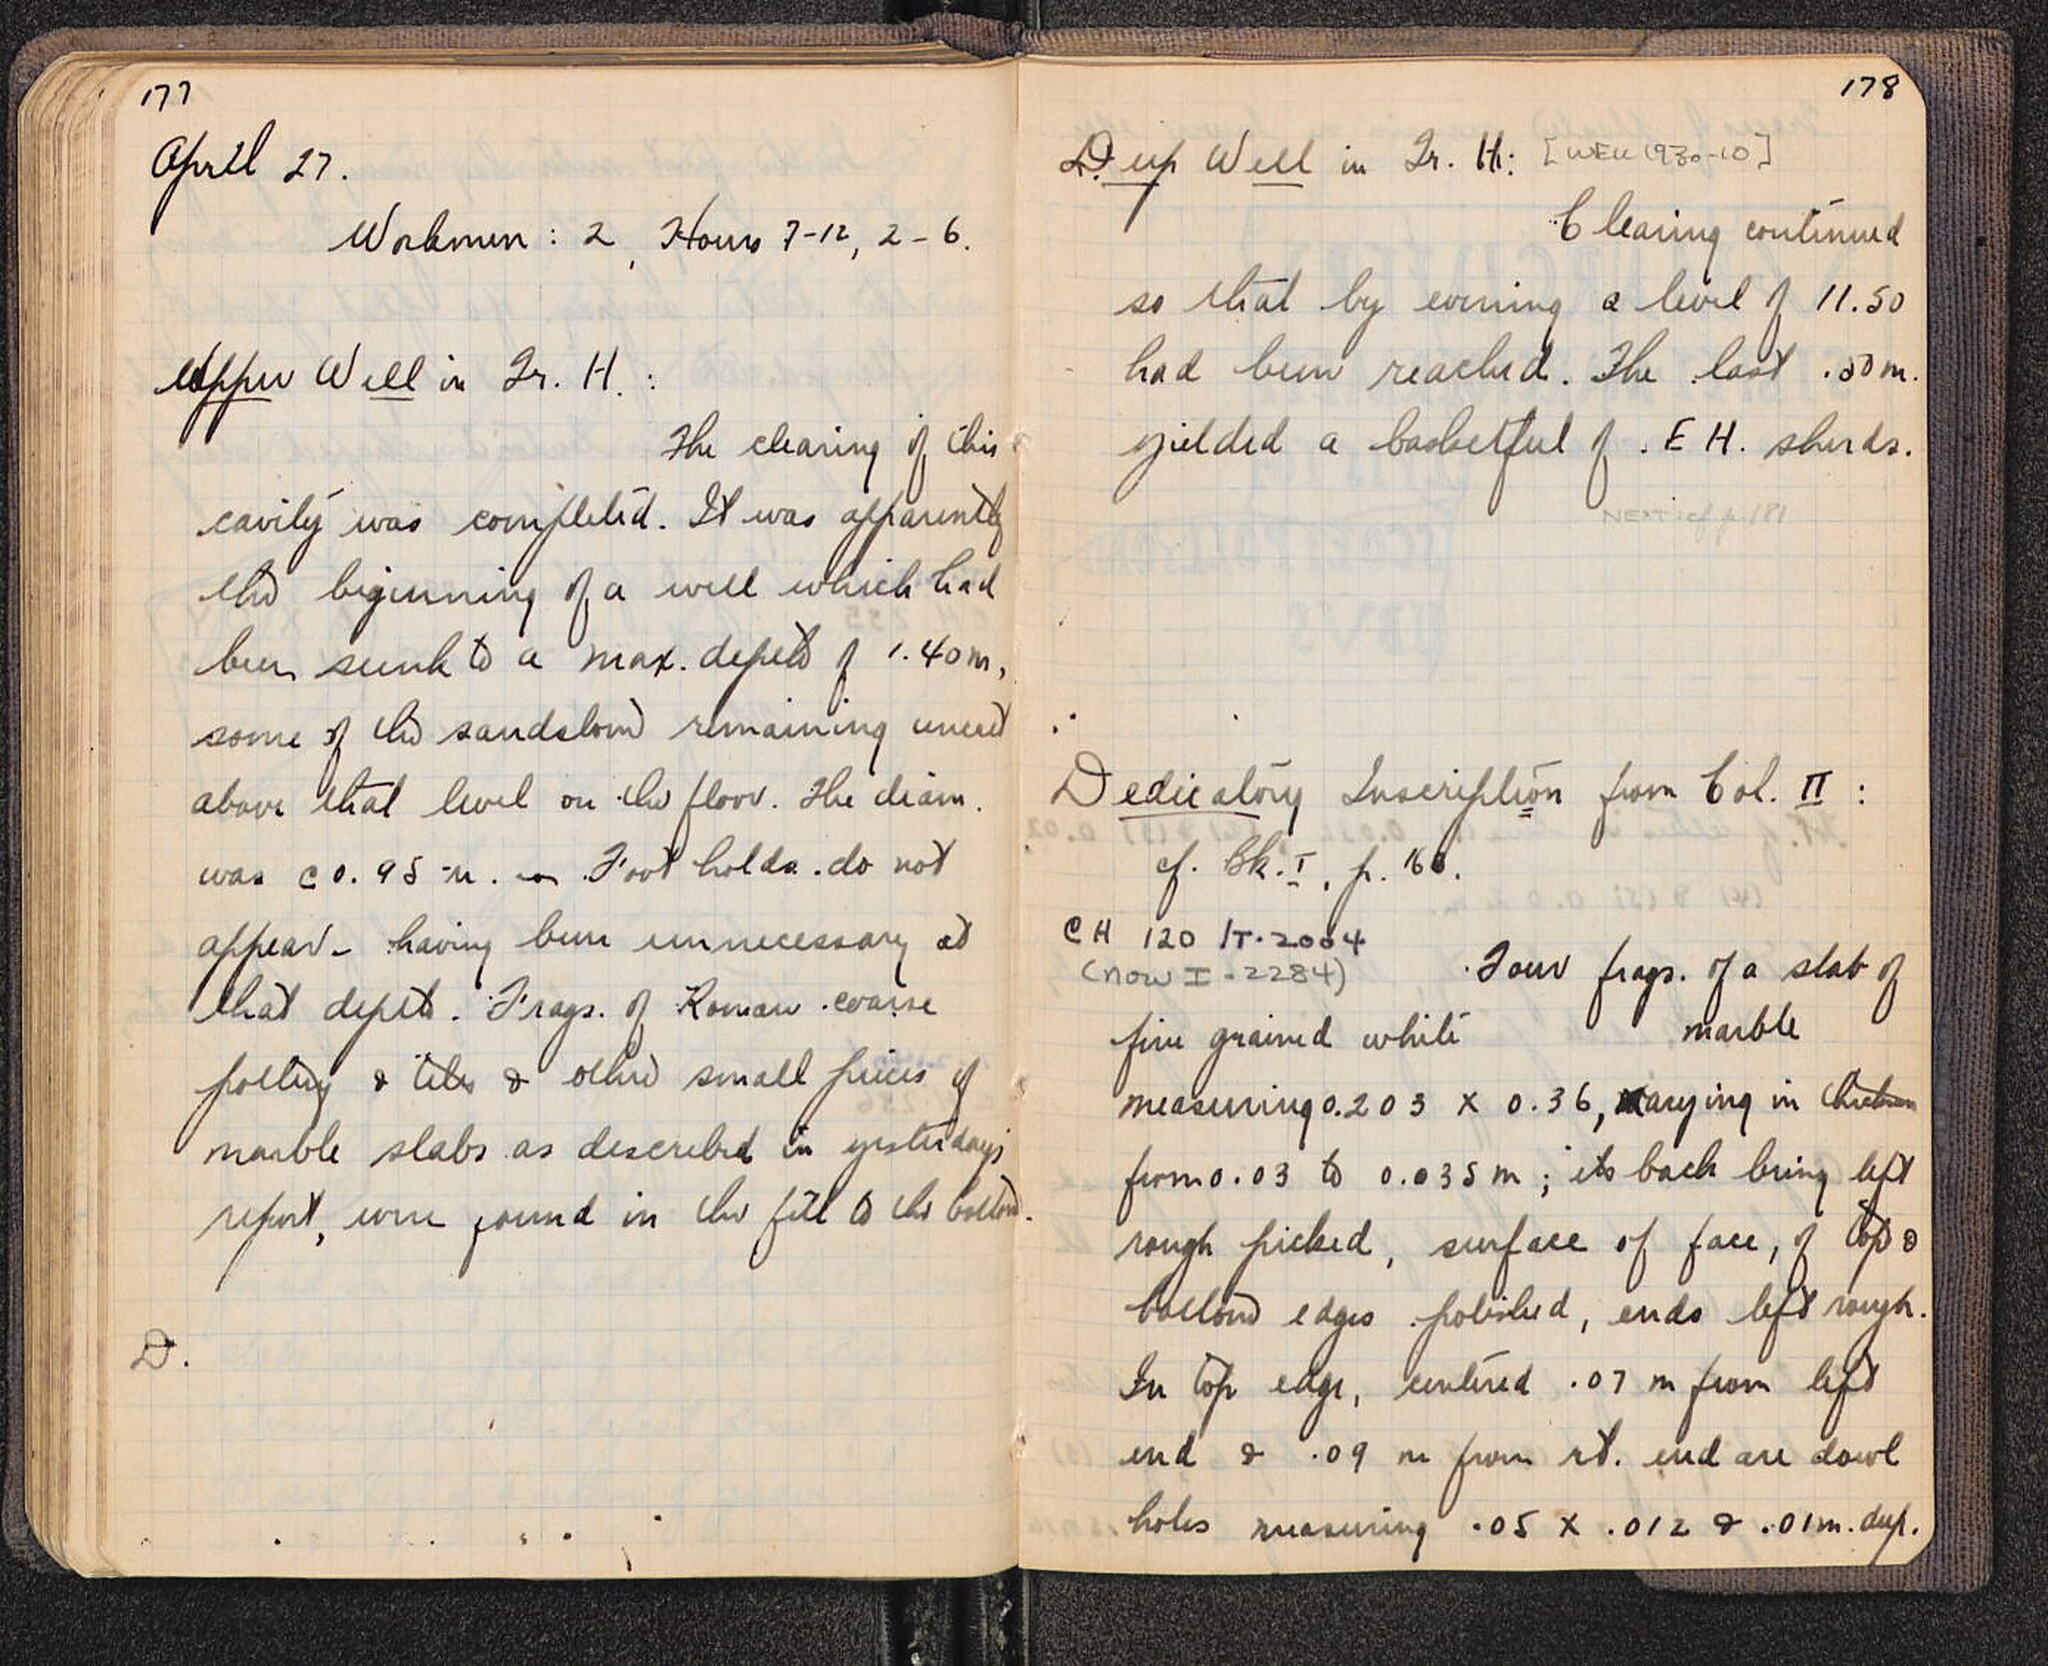 177
April 27.
Workmen : 2, Hours 7-12, 2-6.
Upper Well in Tr. H. :
The clearing of this
cavity was completed. It was apparently
the beginning of a well which had
been sunk to a max. depth of 1.40 m,
some of the sandstone remaining uncut
above that level on the floor. The diam.
was c 0.95 m. Foot holds do not
appear - having been unnecessary at
that depth. Frags. of Roman coarse
pottery & tiles & other small pieces of
marble slabs as described in yesterday's
report, were found in the fill to the bottom.
D.
178
Deep Well in Tr. H: [WELL 1930-10]
Clearing continued
so that by evening a level of 11.50
had been reached. The last .50 m.
yielded a basketful of E H. sherds.
NEXT: cf p. 181
Dedicatory Inscription from Col. II :
cf. Bk. I, p. 166.
CH 120 IT.2004
(now I-2284)
Four frags. of a slab of
fine grained white marble
measuring 0.203 X 0.36, varying in thickness
from 0.03 to 0.035 m ; its back being left
rough picked, surface of face, of top &
bottom edges polished, ends left rough.
In top edge, centered .07 m from left
end & .09 m from rt. end are dowl
holes measuring .05 X .012 & .01 m. deep.